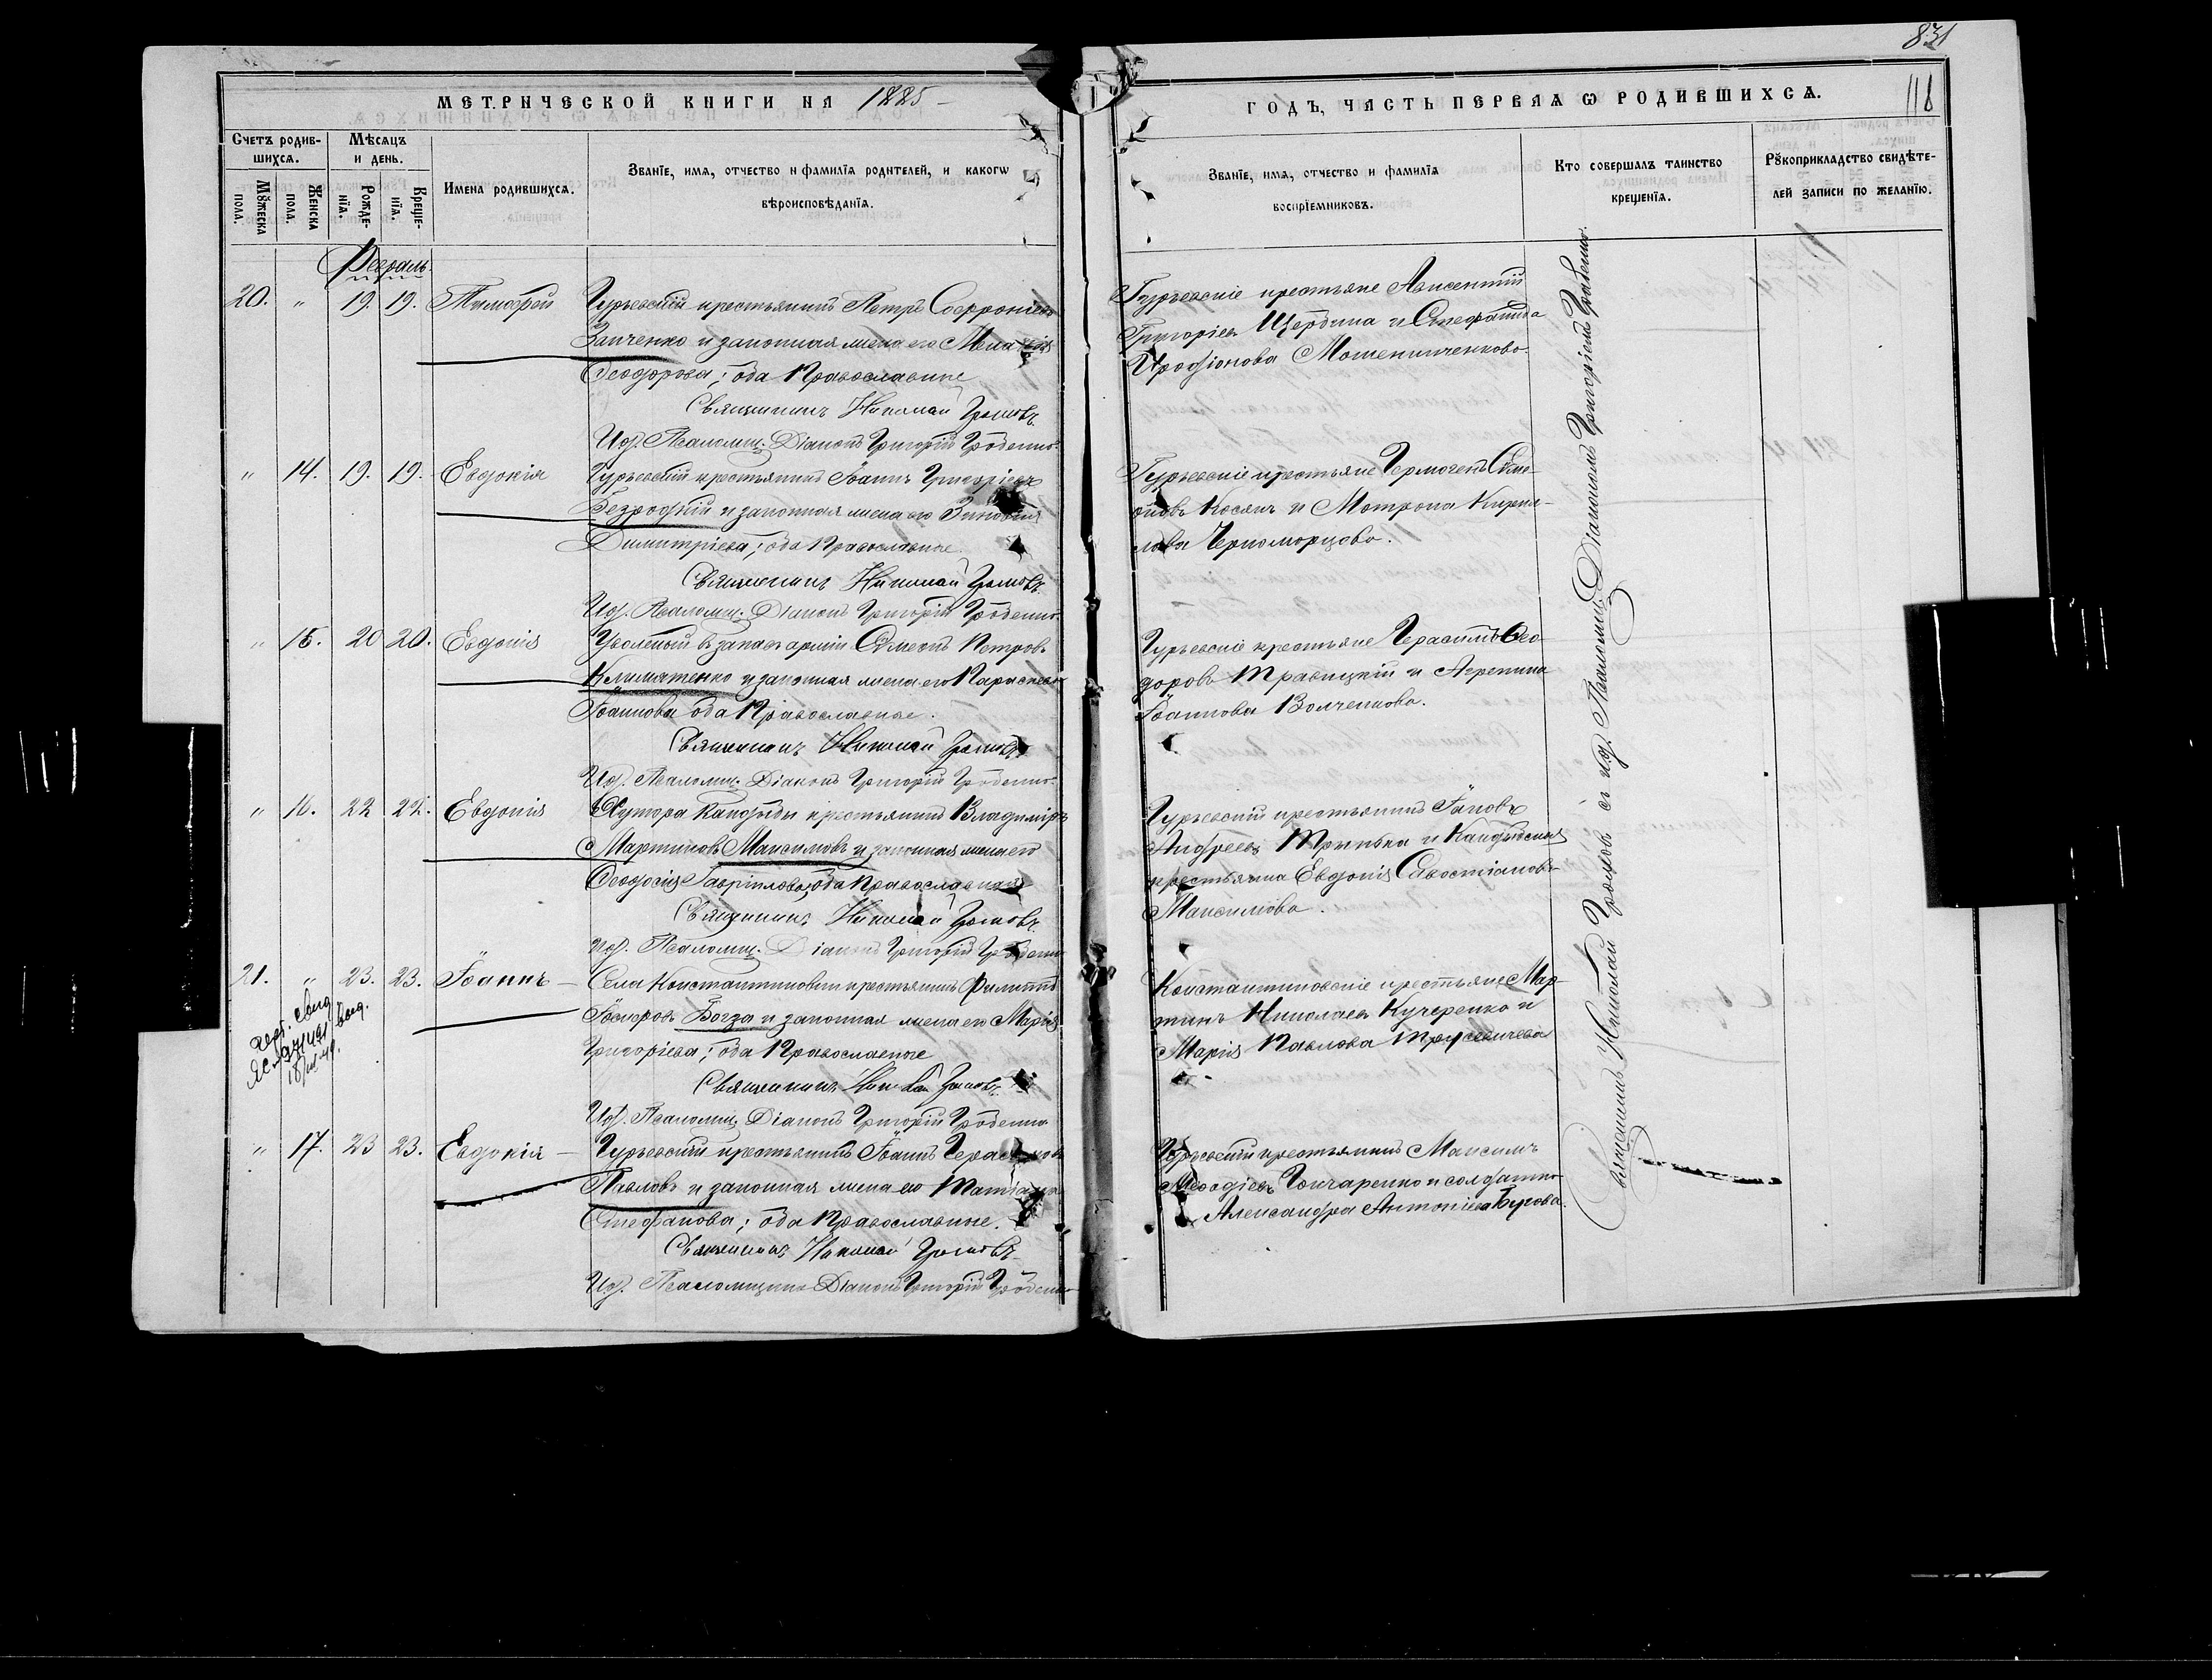 831
118
МЕТРИЧЕСКОЙ КНИГИ НА 1885
ГОДЪ, ЧАСТЬ ПЕРВАЯ Ѡ РОДИВШИХСѦ.
Счетъ родив-
шихсѧ.
Мѣсѧцъ
и день.
Мꙋжеска пола.
Женска пола.
Рожде-
нїѧ.
Креще-
нїѧ.
Имена родившихсѧ.
Званїе, имѧ, отчество и фамилїѧ родителей, и какогѡ
вѣроисповѣданїѧ.
Званїе, имѧ, отчество и фамилїѧ
воспрїемниковъ.
Кто совершалъ таинство
крещенїѧ.
Рꙋкоприкладство свидѣте-
лей записи по желанїю.
Февраль
20. " 19. 19. Тимофей
Гурьевскій крестьянинъ Петръ Софроніевъ
Заиченко и законная жена его Мелагія
Феодорова; оба Православные
Священникъ Николай Громовъ
Ид. Псаломщ. Діаконъ Григорій
Гурьевскіе крестьяне Авксентій
Григоріевъ Щербина и Стефанида
Иродіонова
" 14. 19. 19. Евдокія
Гурьевскій крестьянинъ Іоаннъ Григоріевъ
Безродный и законная жена его Зиновія
Димитріева; оба Православные
Священникъ Николай Громовъ
Ид. Псаломщ. Діаконъ Григорій
Гурьевскіе крестьяне Гермогенъ Симе-
оновъ Косякъ и Матрона Кирил-
лова Черноморцова.
" 15. 20 20. Евдокія
Уволенный въ запасъ арміи Симеонъ Петровъ
Климатенко и законная жена его Параскева
Іоаннова оба Православные.
Священникъ Николай Громовъ
Ид. Псаломщ. Діаконъ Григорій
Гурьевскіе крестьяне Герасимъ Ѳео-
доровъ Травицкій и Агрепина
Іоаннова Волченкова.
" 16. 22 22. Евдокія
Хутора Кандыбы крестьянинъ Владиміръ
Мартиновъ Максимовъ и законная жена его
Феодосія Гавріилова; оба Православные
Священникъ Николай Громовъ
Ид. Псаломщ. Діаконъ Григорій
Гурьевскій крестьянинъ Іаковъ
Андреевъ Трунька и Кандыбская
крестьянка Евдокія Савостіанова
Максимова.
21. " 23. 23. Іоаннъ
Села Константиновки крестьянинъ Филиппъ
Богза и законная жена его Марія
Григоріева; оба Православные
Священникъ Николай Громовъ
Ид. Псаломщ. Діаконъ Григорій
Константиновскіе крестьяне Мар-
тинъ Николаевъ Кучеренко и
Марія Павлова Трусевичева
" 17. 23 23. Евдокія
Гурьевскій крестьянинъ Іоаннъ Герасимовъ
Павловъ и законная жена его Татіана
Стефанова; оба Православные.
Священникъ Николай Громовъ
Ид. Псаломщика Діаконъ Григорій
Гурьевскій крестьянинъ Максимъ
Меѳодіевъ Гончаренко и солдатка
Александра Антоніева Бурова
Священникъ Николай Громовъ съ ид. Псаломщ. Діакономъ Григоріемъ